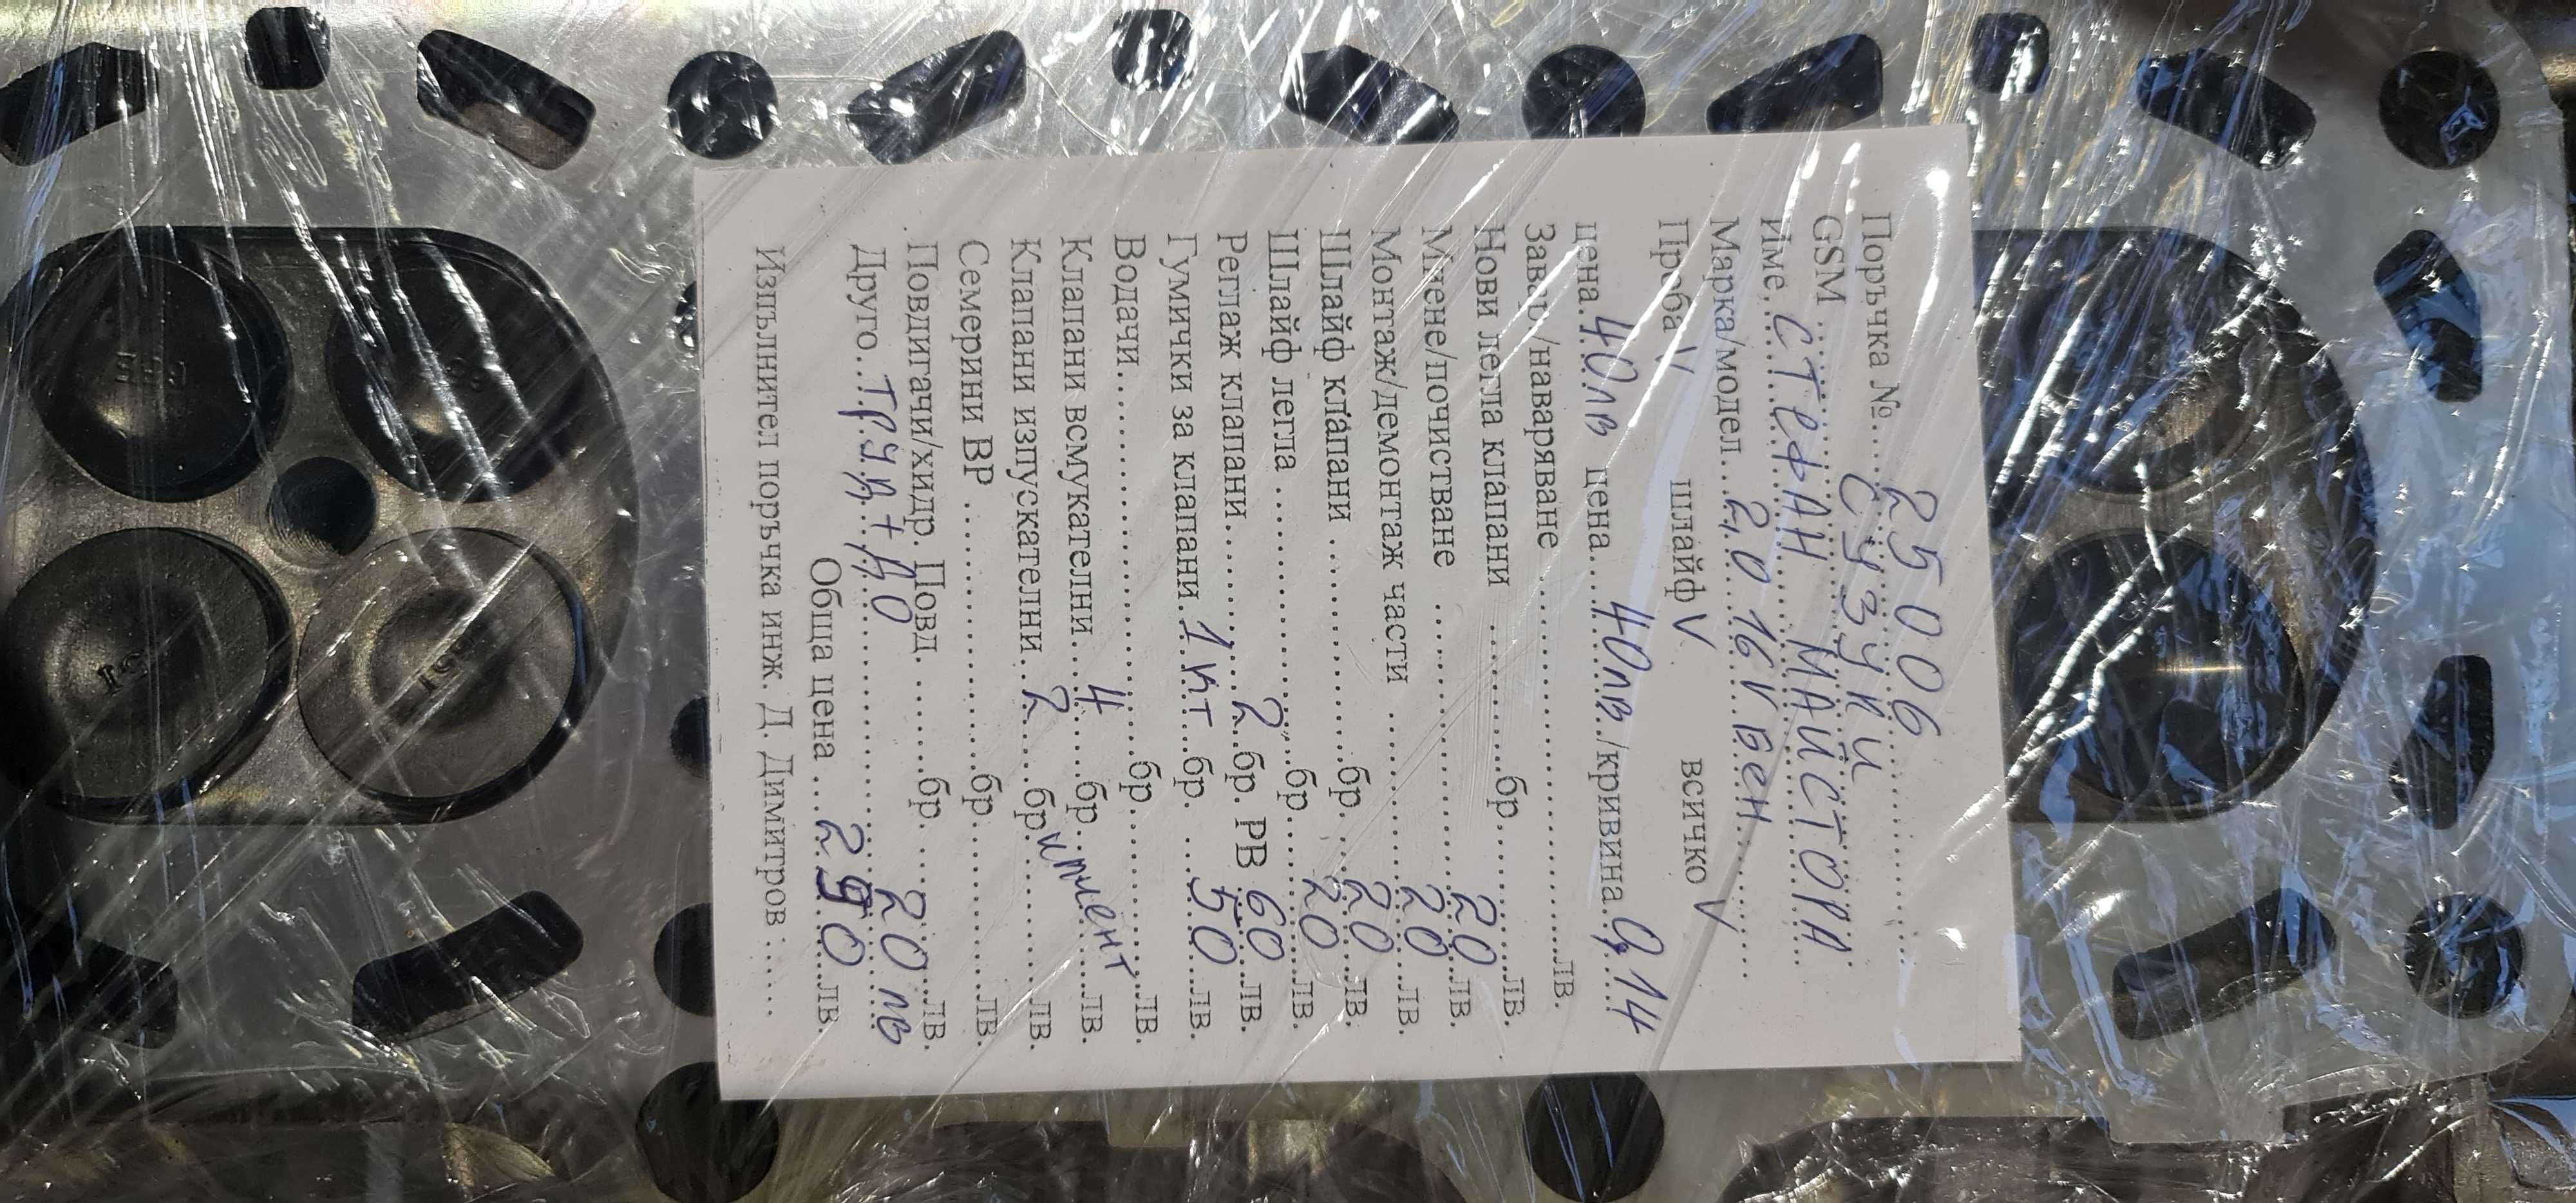 Поръчка №.....25006
GSM ......сузуки
Име....СТЕФАН МАЙСТОРА
Марка/модел...2,0 16V Бен.
Проба V шлайф V всичко V
цена.40лв цена....40лв./кривина.0,14
Завар./наваряване ..........лв.
Нови легла клапани ..........бр..........лв.
Миене/почистване ..........20 лв.
Монтаж/демонтаж части ..........20 лв.
Шлайф клапани ..........бр.....20 лв.
Шлайф легла ..........бр.....20 лв.
Реглаж клапани..........2..бр. РВ 60 лв.
Гумички за клапани.1 кт...бр. ....50 лв.
Водачи..........бр..........лв.
Клапани всмукателни....4....бр..........лв.
Клапани изпускателни..2....бр..........лв.
Семерини ВР ..........бр..........лв.
Повдигачи/хидр. Повд. ..........бр..........лв.
Друго.. 20 лв
Обща цена ....290 лв.
Изпълнител поръчка инж. Д. Димитров :.....